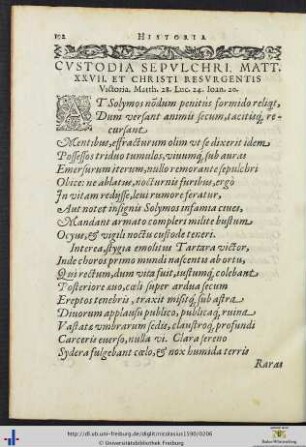 192 HISTORIA
CVSTODIA SEPVLCHRI, MATT.
XXVII. ET CHRISTI RESVRGENTIS
Victoria, Matth. 28. Luc. 24. Ioan. 20.
AT Solymos nōdum penitus formido reliqt,
Dum versant animis secum, tacitisq́, re-
cursant
Mentibus, effracturum olim vt se dixerit idem
Possessos triduo tumulos, viuumq́, sub auras
Emersurum iterum, nullo remorante sepulchri
Obice: ne ablatus, nocturnis furibus, ergò
In vitam redijsse, leui rumore feratur,
Aut notet insignis Solymos infamia ciues,
Mandant armato compleri milite bustum
Ocyus, & vigili noctu custode teneri.
Interea, stygia emolitus Tartara victor,
Inde choros primo mundi nascentis ab ortu,
Qui rectum, dum vita fuit, iustumq́, colebant
Posteriore æuo, cœli super ardua secum
Ereptos tenebris, traxit misitq́, sub astra
Diuorum applausu publico, publicaq́, ruina
Vastatæ vmbrarum sedis, claustroq́, profundi
Carceris euerso, nulla vi. Clara sereno
Sydera fulgebant cælo, & nox humida terris
Raras
http://dl.ub.uni-freiburg.de/diglit/nicolasius1590/0206
© Universitätsbibliothek Freiburg
Baden-Württemberg